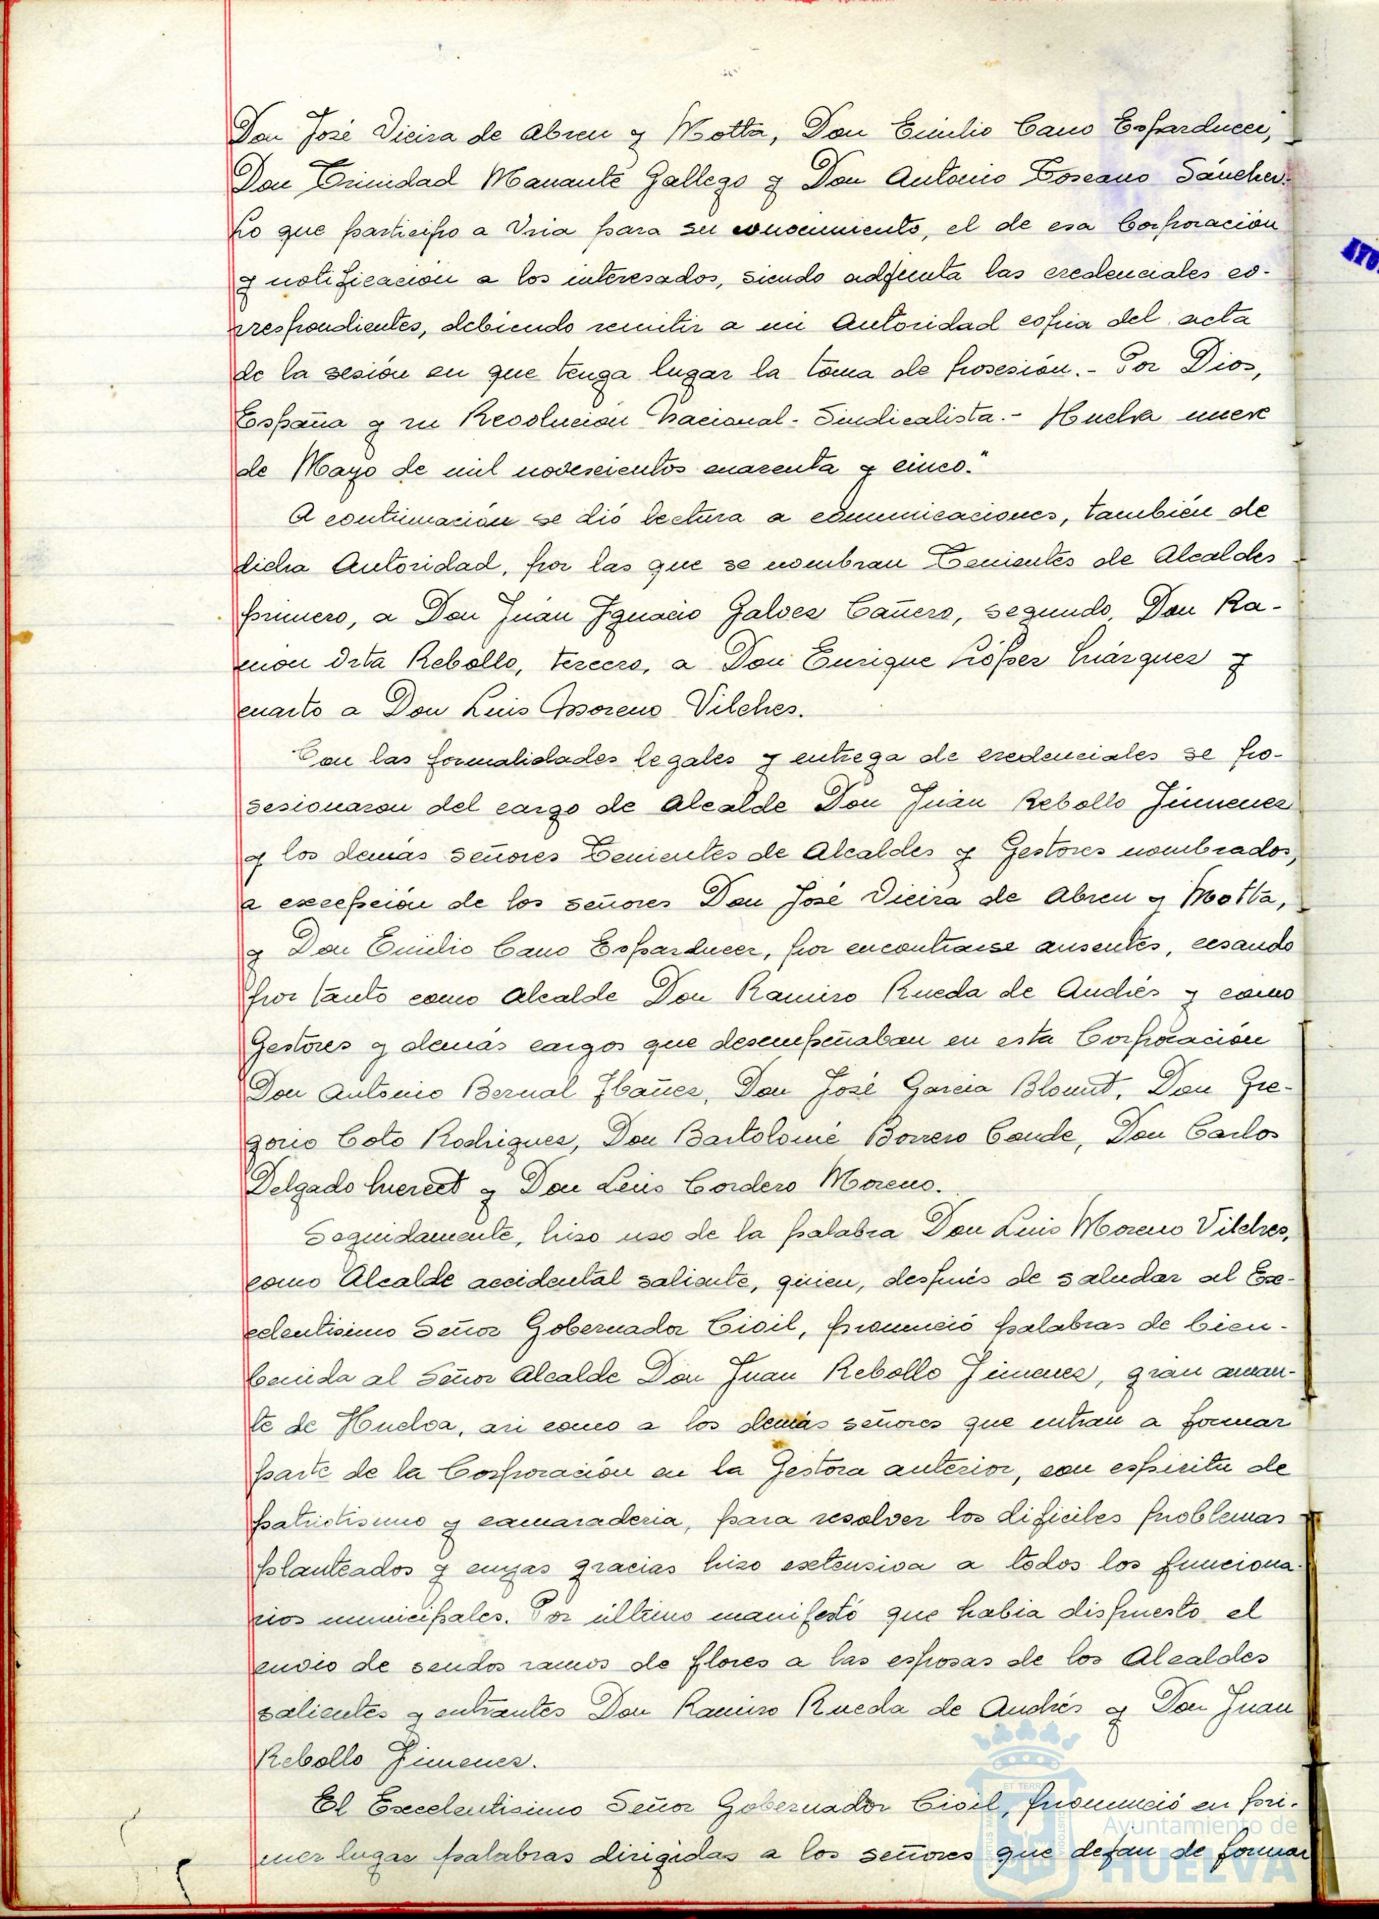 Don José Vieira de Abreu y Motta, Don Emilio Cano Esparducer,
Don Trinidad Manante Gallego y Don Antonio Toscano Sánchez.
Lo que participo a Vsia para su conocimiento, el de esa Corporación
y notificación a los interesados, siendo adjunta las credenciales co-
rrespondientes, debiendo remitir a mi Autoridad copia del acta
de la sesión en que tenga lugar la toma de posesión.- Por Dios,
España y su Revolución Nacional-Sindicalista.- Huelva nueve
de Mayo de mil novescientos cuarenta y cinco."
A continuación se dió lectura a comunicaciones, también de
dicha Autoridad, por las que se nombran Tenientes de Alcaldes
primero, a Don Juan Ygnacio Galvez Cañero, segundo, Don Ra-
món Orta Rebollo, tercero, a Don Enrique López Márquez y
cuarto a Don Luis Moreno Vilches.
Con las formalidades legales y entrega de credenciales se po-
sesionaron del cargo de Alcalde Don Juan Rebollo Jimenez
y los demás señores Tenientes de Alcaldes y Gestores nombrados,
a excepción de los señores Don José Vieira de Abreu y Motta,
y Don Emilio Cano Esparducer, por encontrarse ausentes, cesando
por tanto como Alcalde Don Ramiro Rueda de Andrés y como
Gestores y demás cargos que desempeñaban en esta Corporación
Don Antonio Bernal Ybañez, Don José Garcia Don Gre-
gorio Coto Rodriguez, Don Bartolomé Borrero Conde, Don Carlos
Delgado y Don Luis Cordero Moreno.
Seguidamente, hizo uso de la palabra Don Luis Moreno Vilches,
como Alcalde accidental saliente, quien, después de saludar al Ex-
celentisimo Señor Gobernador Civil, pronunció palabras de bien-
benida al Señor Alcalde Don Juan Rebollo Jimenez, gran aman-
te de Huelva, asi como a los demás señores que entran a formar
parte de la Corporación en la Gestora anterior, con espiritu de
patriotismo y camaraderia, para resolver los dificiles problemas
planteados y cuyas gracias hizo extensiva a todos los funciona-
rios municipales. Por último manifestó que habia dispuesto el
envio de sendos ramos de flores a las esposas de los Alcaldes
salientes y entrantes Don Ramiro Rueda de Andrés y Don Juan
Rebollo Jimenez.
El Excelentisimo Señor Gobernador Civil, pronunció en pri-
mer lugar palabras dirigidas a los señores que dejan de formar
Ayuntamiento de
HUELVA